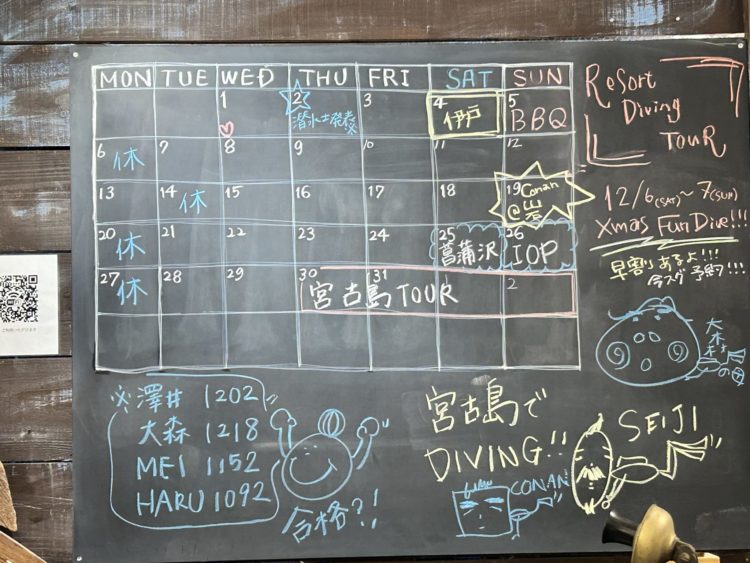 MON TUE WED THU FRI SAT SUN
1 2 3 4 5
潜水士発表
伊戸
BBQ
6 7 8 9 10 11 12
休
13 14 15 16 17 18 19
休
Conan
@岩
20 21 22 23 24 25 26
休
菖蒲沢
IOP
27 28 29 30 31 2
休
宮古島TOUR
ReSort
Diving
TouR
12/6(SAT)~7(SUN)
Xmas Fun Dive!!!
早割りあるよ!!!
今スグ予約!!!
大森
※澤井 1202
大森 1218
MEI 1152
HARU 1092
合格?!
宮古島で
DIVING!!
CONAN
SEIJI